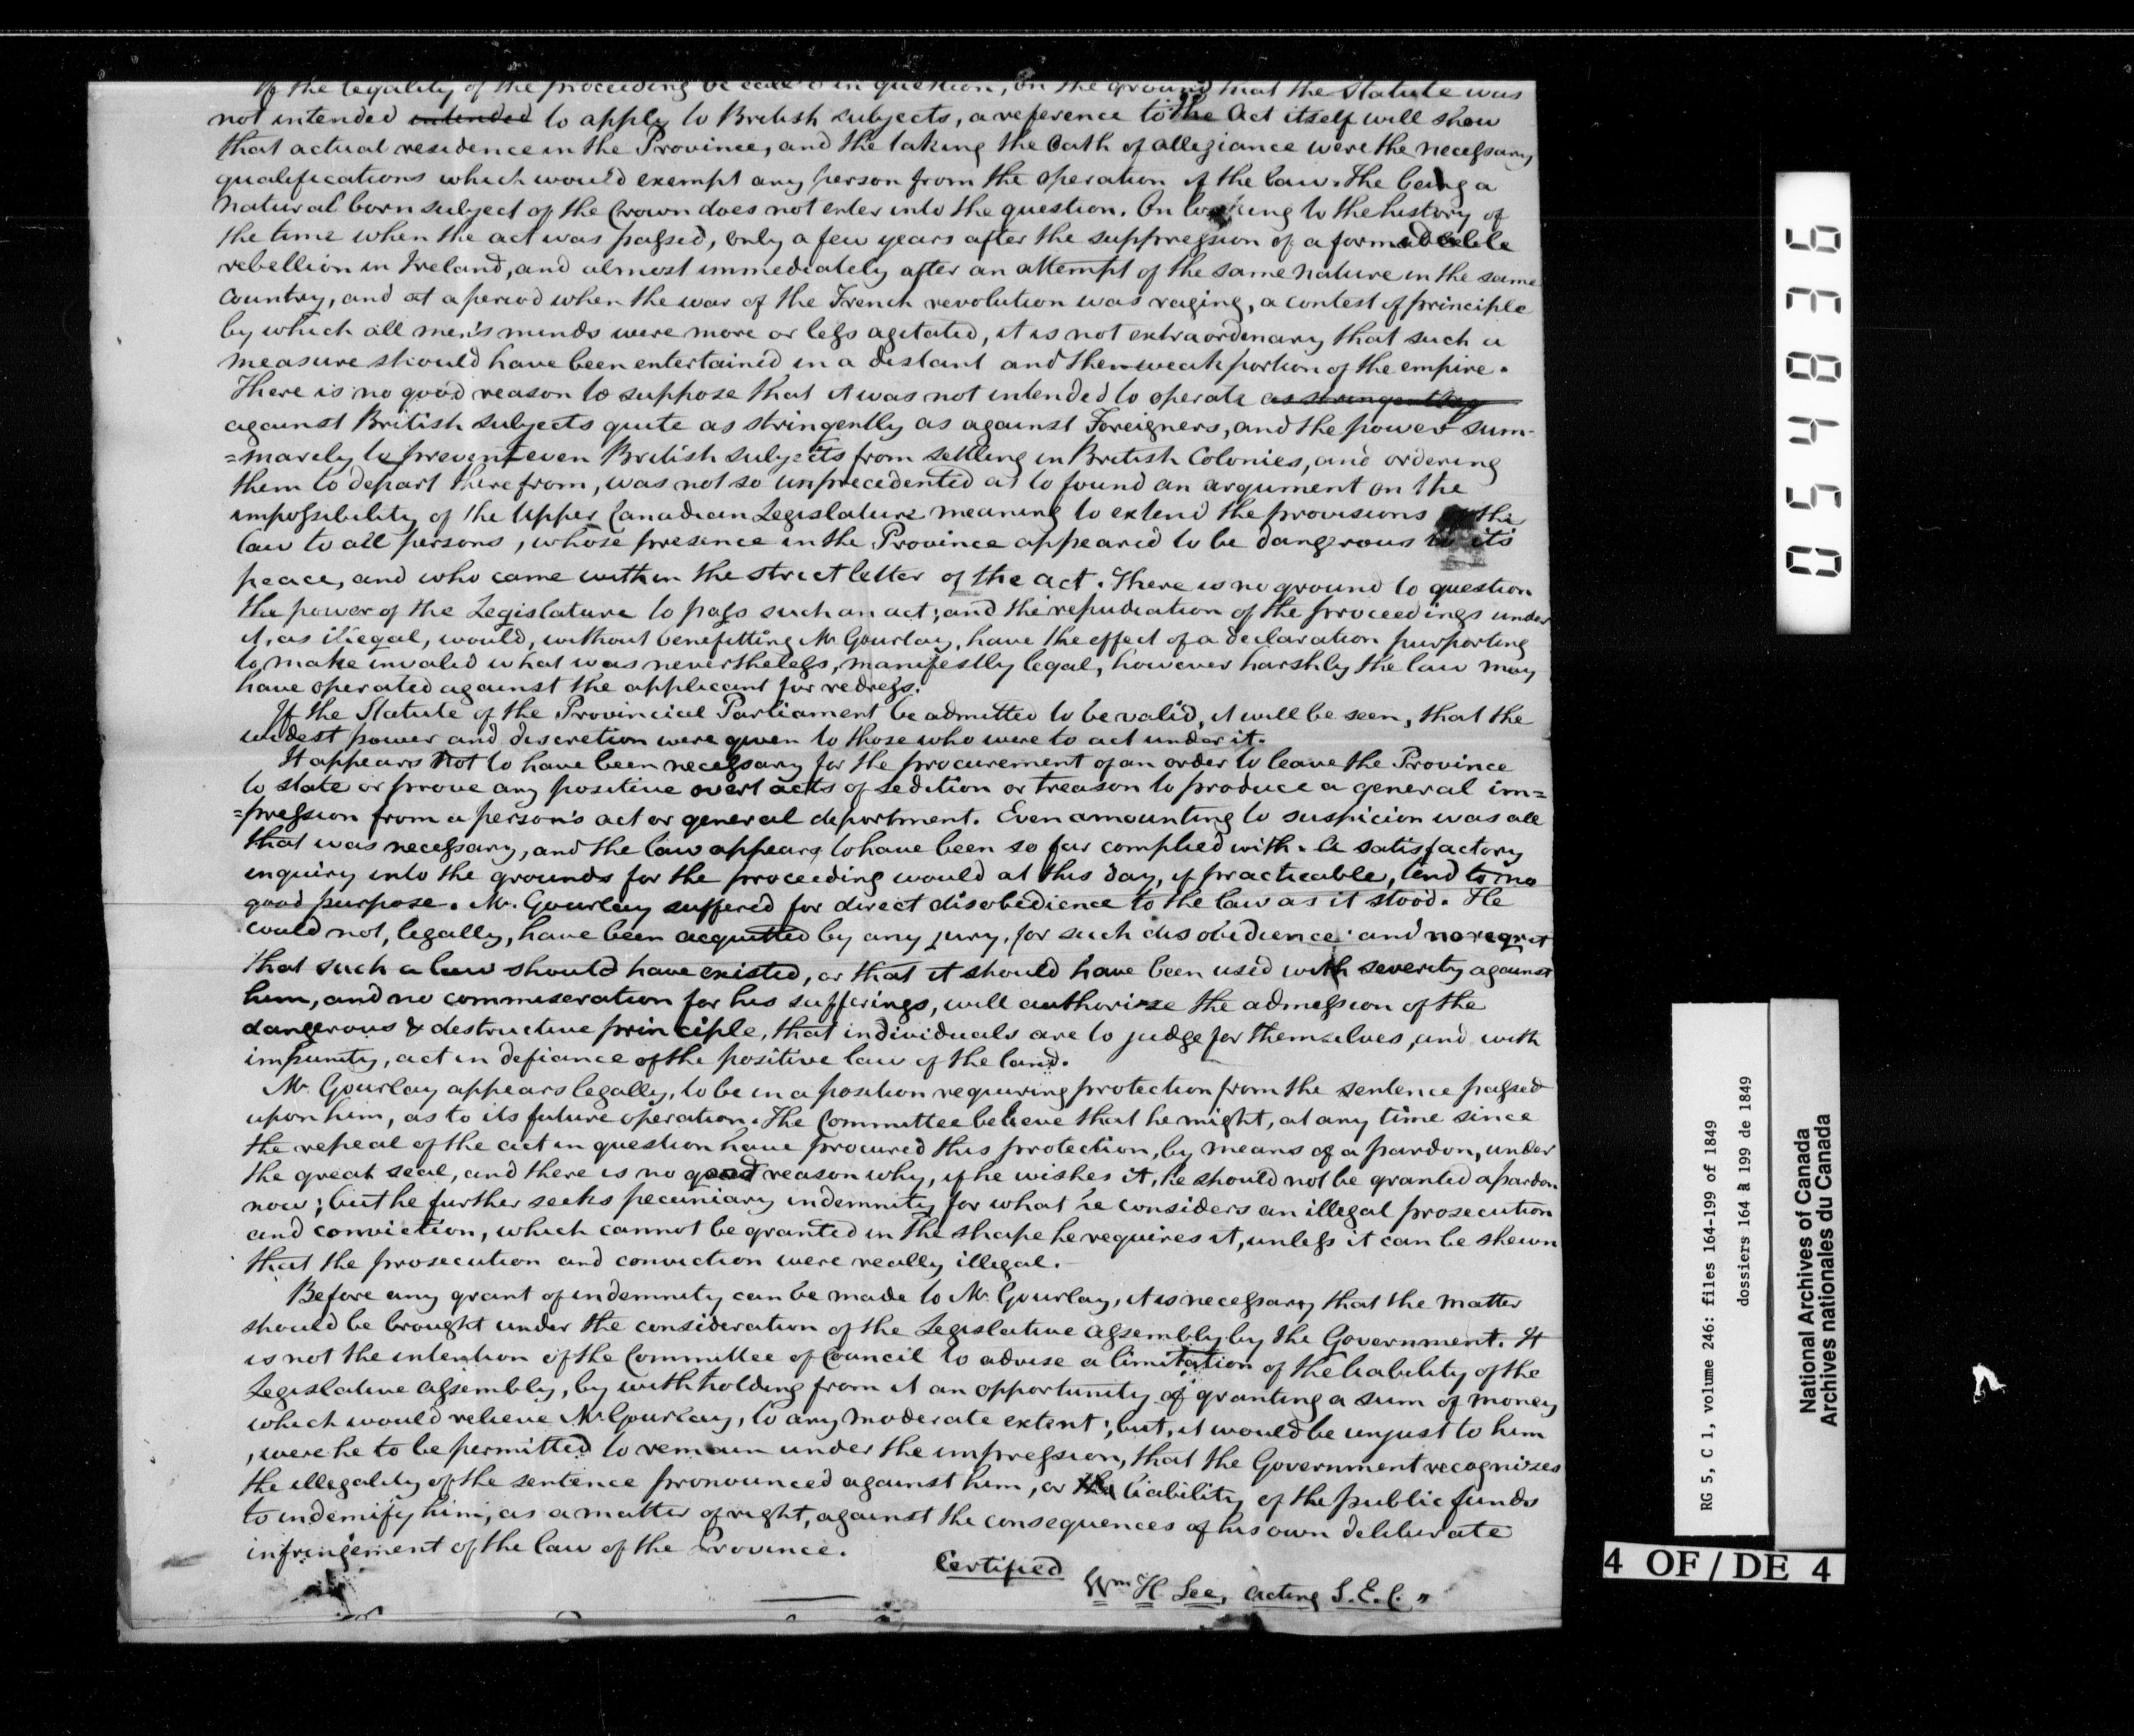 If the legality of the proceeding be call'd in question, on the ground that the Statute was
not intended intended to apply to British subjects, a reference to the Act itself will show
that actual residence in the Province, and the taking the Oath of allegiance were the necessary
qualifications which would exempt any person from the operation of the law. The being a
natural born subject of the Crown does not enter into the question. On looking to the history of
the time when the act was passed, only a few years after the suppression of a formidable
rebellion in Ireland, and almost immediately after an attempt of the same nature in the same
Country, and at a period when the war of the French revolution was raging, a contest of principle
by which all men's minds were more or less agitated, it is not extraordinary that such a
measure should have been entertained in a distant and then weak portion of the empire.
There is no good reason to suppose that it was not intended to operate as stringently
against British subjects quite as stringently as against Foreigners, and the power sum-
=marily to prevent even British subjects from settling in British Colonies, and ordering
them to depart therefrom, was not so unprecedented as to found an argument on the
impossibility of the Upper Canadian Legislature meaning to extend the provisions of the
law to all persons, whose presence in the Province appeared to be dangerous to its
peace, and who came within the strict letter of the act. There is no ground to question
the power of the Legislature to pass such an act; and the repudiation of the proceedings under
it, as illegal, would, without benefitting Mr Gourlay, have the effect of a declaration purporting
to make invalid what was nevertheless, manifestly legal, however harshly the law may
have operated against the applicant for redress.
If the Statute of the Provincial Parliament be admitted to be valid, it will be seen, that the
widest power and discretion were given to those who were to act under it.
It appears not to have been necessary for the procurement of an order to leave the Province
to state or prove any positive overt acts of sedition or treason to produce a general im=
=pression from a person's act or general deportment. Even amounting to suspicion was all
that was necessary, and the law appears to have been so far complied with. A satisfactory
inquiry into the grounds for the proceeding would at this day, if practicable, tend to no
good purpose. Mr. Gourlay suffered for direct disobedience to the law as it stood. He
could not, legally, have been acquitted by any jury, for such disobedience: and no regret
that such a law should have existed, or that it should have been used with severity against
him, and no commiseration for his sufferings, will authorize the admission of the
dangerous & destructive principle, that individuals are to judge for themselves, and with
impunity, act in defiance of the positive law of the land.
Mr. Gourlay appears legally, to be in a position requiring protection from the sentence passed
upon him, as to its future operation. The Committee believe that he might, at any time since
the repeal of the act in question have procured this protection, by means of a pardon, under
the great seal, and there is no good reason why, if he wishes it, he should not be granted a pardon
now; but he further seeks pecuniary indemnity for what he considers an illegal prosecution
and conviction, which cannot be granted in the shape he requires it, unless it can be shewn
that the prosecution and conviction were really illegal.
Before any grant of indemnity can be made to Mr. Gourlay, it is necessary that the matter
should be brought under the consideration of the Legislative Assembly by the Government. It
is not the intention of the Committee of Council to advise a limitation of the liability of the
Legislative Assembly, by withholding from it an opportunity of granting a sum of money
which would relieve Mr Gourlay, to any moderate extent; but, it would be unjust to him
, were he to be permitted to remain under the impression, that the Government recognizes
the illegality of the sentence pronounced against him, or the liability of the public funds
to indemify him, as a matter of right, against the consequences of his own deliberate
infringement of the law of the Province.
Certified
Wm H Lee, Acting S.E.C. "
054836
RG 5, C 1, volume 246: files 164-199 of 1849
dossiers 164 à 199 de 1849
National Archives of Canada
Archives nationales du Canada
4 OF/DE 4